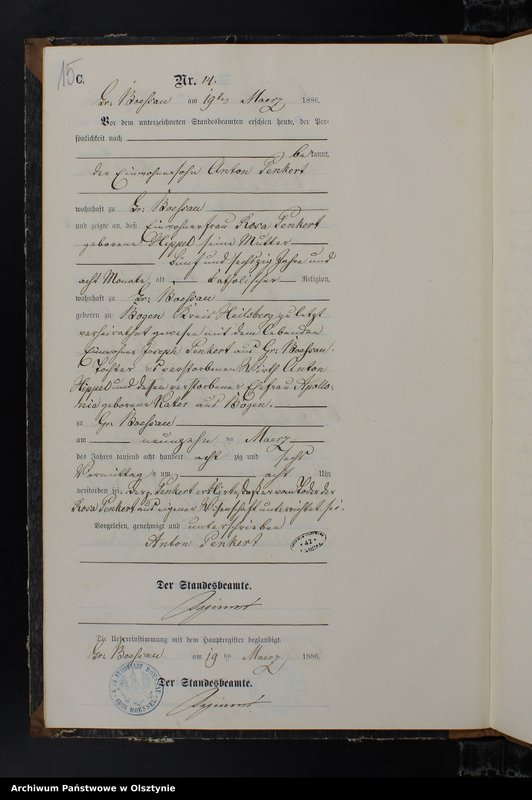 15
C.
Nr. 14.
Gr: Boessau am 19ten Maerz 1886.
Vor dem unterzeichneten Standesbeamten erschien heute, der Per-
sönlichkeit nach
bekannt,
der Einwohnersohn Anton Penkert
wohnhaft zu Gr: Boessau
und zeigte an, daß Einwohnerfrau Rosa Penkert
geborene Hippel seine Mutter
fünf und sechszig Jahre und
acht Monate alt katholischer Religion,
wohnhaft zu Gr: Boessau
geboren zu Bogen Kreis Heilsberg zuletzt
verheirathet gewesen mit dem lebenden
Einwohner Joseph Penkert aus Gr: Boessau.
Tochter des verstorbenen Wirth Anton
Hippel und dessen verstorbener Ehefrau Apollo-
nia geborene Kater aus Bogen.
zu Gr: Boessau
am neunzehn ten Maerz
des Jahres tausend acht hundert acht zig und sechs
Vormittags um acht Uhr
verstorben sei. Der p. Penkert erklärte, daß er vom Tode der
Rosa Penkert aus eigener Wissenschaft unterrichtet sei.
Vorgelesen, genehmigt und unterschrieben
Anton Penkert
Der Standesbeamte.
Die Uebereinstimmung mit dem Hauptregister beglaubigt.
Gr: Boessau am 19 ten Maerz 1886.
Der Standesbeamte.
Archiwum Państwowe w Olsztynie